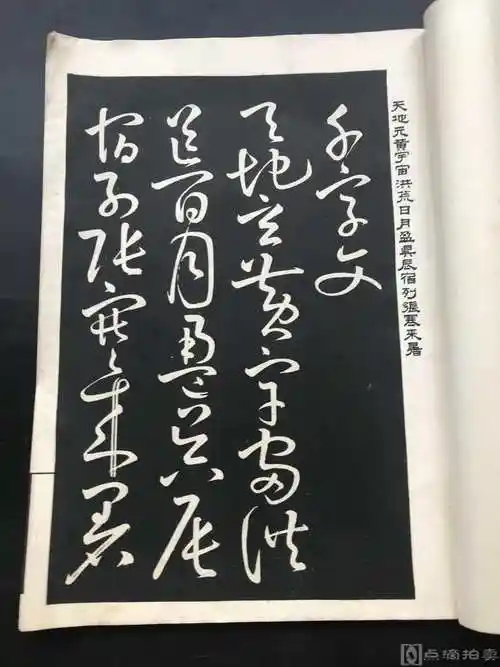 天地元黄宇宙洪荒日月盈昃辰宿列張寒来暑
千字文
天地玄黄宇宙洪
荒日月盈昃辰
宿列張寒来暑
点滴拍卖